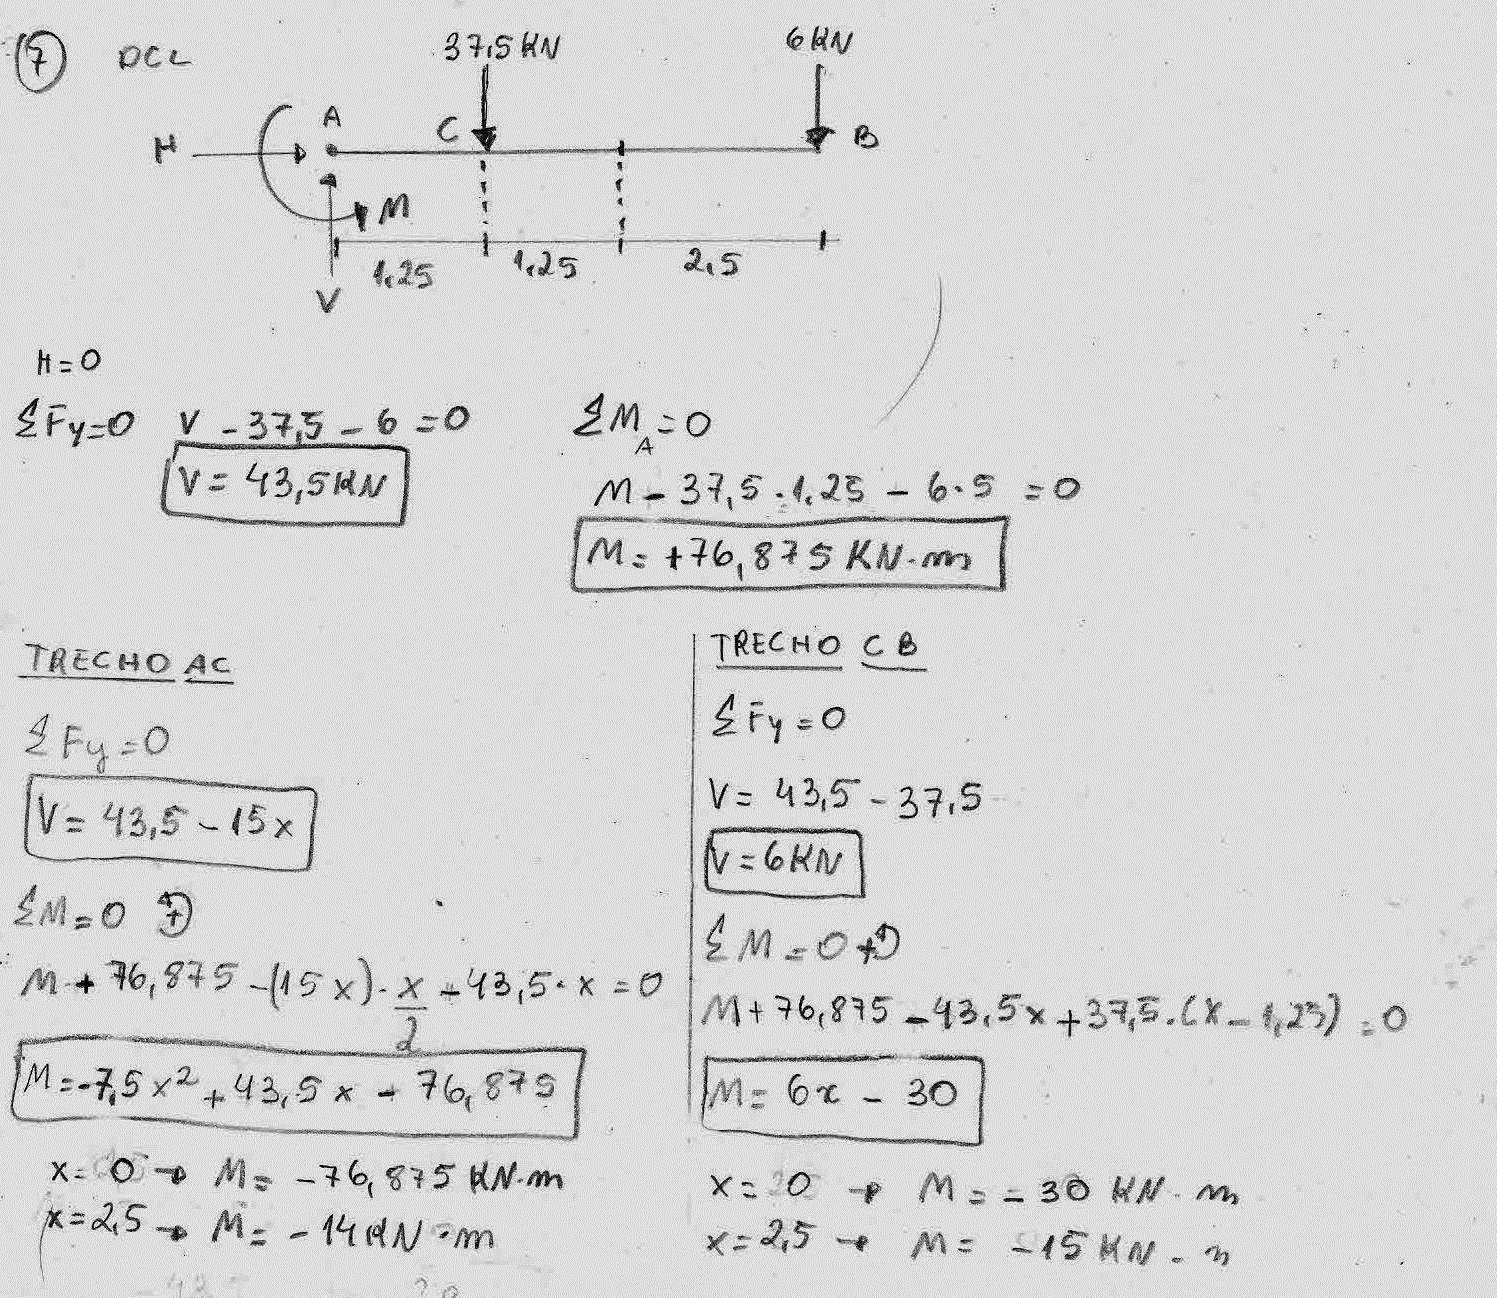 7 DCL
37,5 KN
6 KN
H
A
C
B
M
1,25
1,25
2,5
V
H=0
ΣFy=0 V - 37,5 - 6 = 0
V = 43,5 KN
ΣM_A = 0
M - 37,5 · 1,25 - 6 · 5 = 0
M = +76,875 KN·m
TRECHO AC
ΣFy=0
V = 43,5 - 15x
ΣM=0 +
M + 76,875 - (15x) · x/2 - 43,5 · x = 0
M = -7,5x² + 43,5x - 76,875
x = 0 → M = -76,875 KN·m
x = 2,5 → M = -14 KN·m
TRECHO CB
ΣFy=0
V = 43,5 - 37,5
V = 6 KN
ΣM = 0 +
M + 76,875 - 43,5x + 37,5 · (x - 1,25) = 0
M = 6x - 30
x = 0 → M = -30 KN·m
x = 2,5 → M = -15 KN·m